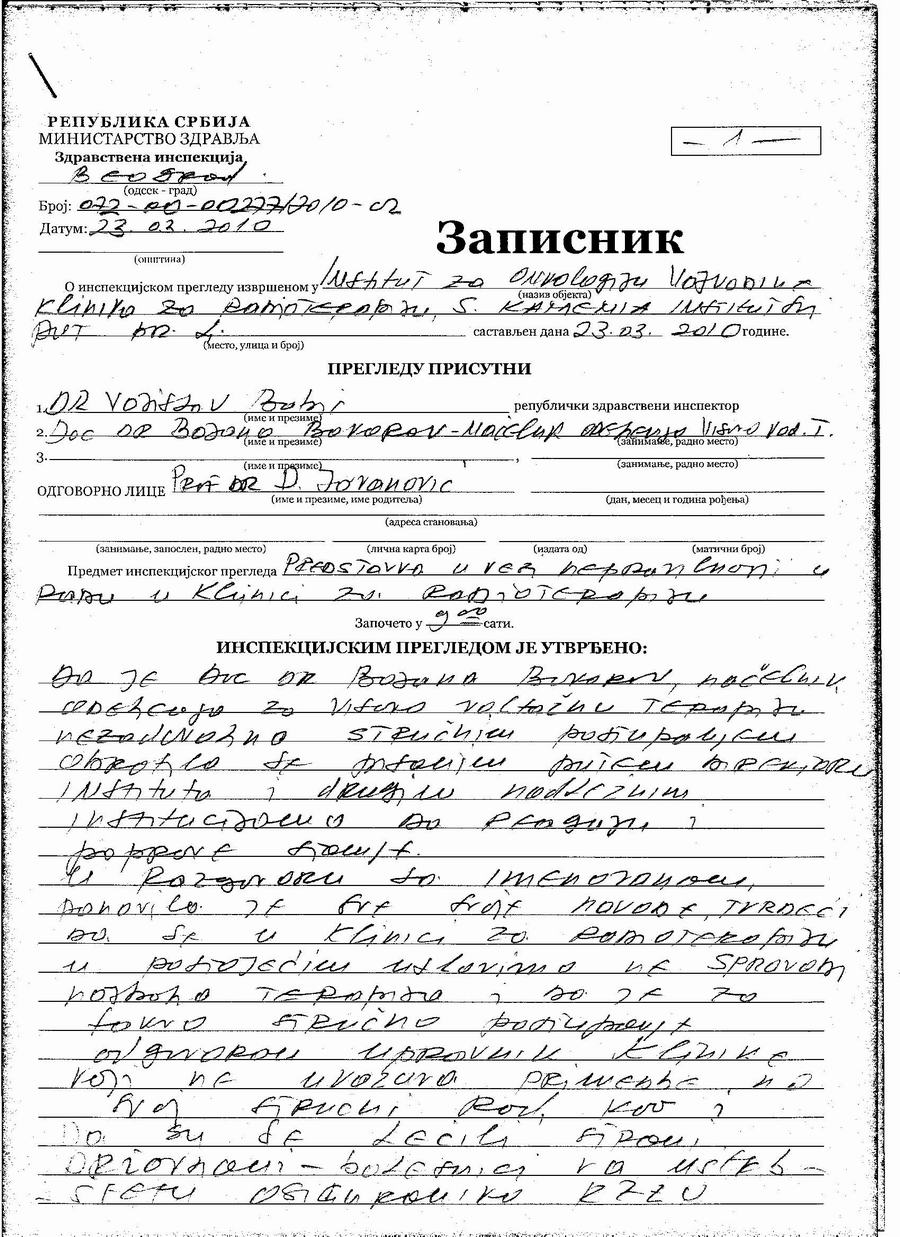 РЕПУБЛИКА СРБИЈА
МИНИСТАРСТВО ЗДРАВЉА
Здравствена инспекција
Београд
(одсек - град)
Број: 072-00-00277/2010-02
Датум: 23. 03. 2010
(општина)
- 1 -
Записник
О инспекцијском прегледу извршеном у Institut za Onkologiju Vojvodine
(назив објекта)
Klinika za Radioterapiju, S. KAMENICA Institutski
put br. 4. састављен дана 23.03. 2010 године.
(место, улица и број)
ПРЕГЛЕДУ ПРИСУТНИ
1. DR Vojislav Babić републички здравствени инспектор
(име и презиме)
2. Doc DR Bojana Bokorov - Načelnik odeljenja Visoko vol. T.
(име и презиме) (занимање, радно место)
3. ,
(име и презиме) (занимање, радно место)
ОДГОВОРНО ЛИЦЕ Prof DR D. Jovanović
(име и презиме, име родитеља) (дан, месец и година рођења)
(адреса становања)
(занимање, запослен, радно место) (лична карта број) (издата од) (матични број)
Предмет инспекцијског прегледа Predstavka u vezi nepravilnosti u
Radu u Klinici za Radioterapiju
Започето у 9 00 сати.
ИНСПЕКЦИЈСКИМ ПРЕГЛЕДОМ ЈЕ УТВРЂЕНО:
Da je Doc DR Bojana Bokorov, načelnik
odeljenja za Visoko voltažnu Terapiju
nezadovoljna stručnim postupanjem
obratila se pisanim putem Direktoru
Instituta i drugim nadležnim
institucijama da reaguju i
poprave stanje.
U Razgovoru sa Imenovanom,
ponovila je sve svoje navode, tvrdeći
da se u Klinici za Radioterapiju
u postojećim uslovima ne SPROVODI
najbolja Terapija i da je za
takvo stručno postupanje
odgovoran upravnik Klinike
koji ne uvažava primedbe na
svoj stručni Rad, kao i
Da su se Lečili strani
Državljani - bolesnici na uštrb -
- štetu osiguranika RZZO